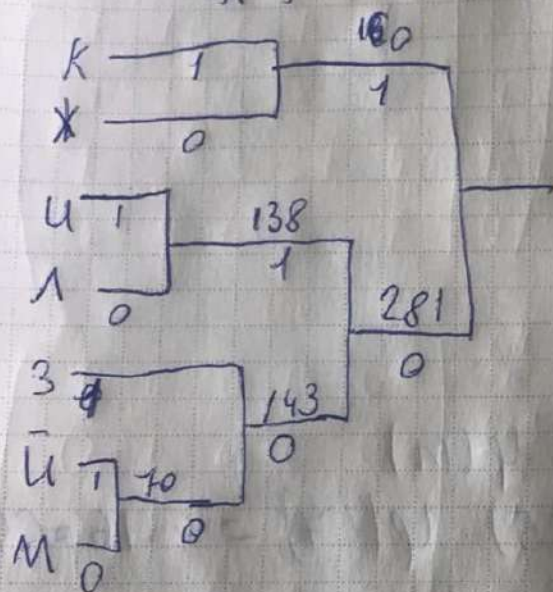 К 1 160
Ж 0 1
И 1 138
Л 0 1 281
З 1 143 0
Й 1 70 0
М 0 0